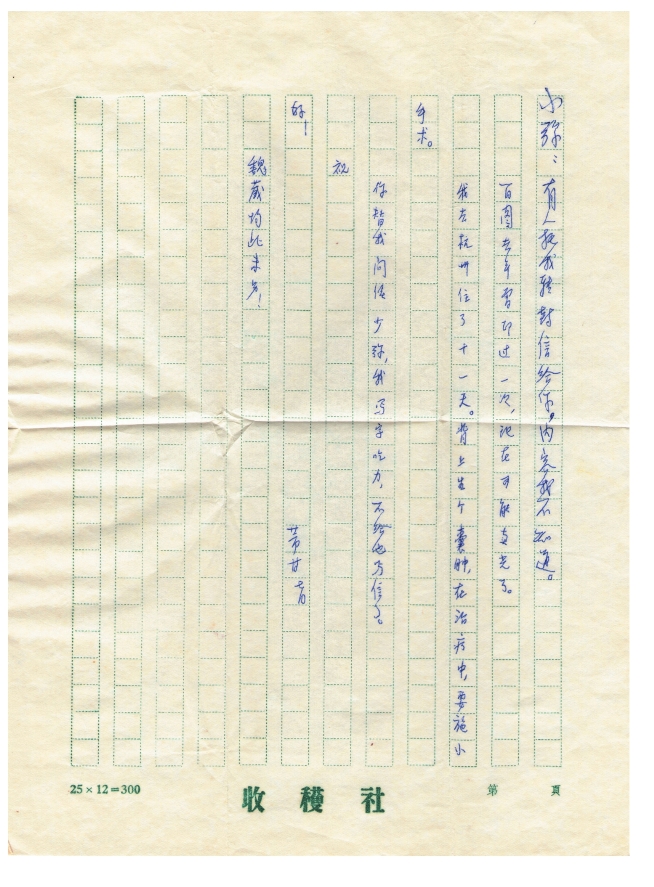 小弥：有人托我转封信给你，内容我不知道。
百图去年曾印过一次，现在可能卖光了。
我去杭州住了十一天。背上生个囊肿，在治疗中，要施小
手术。
你暂我问候少弥，我写字吃力，不给他写信了。
祝
好！
芾甘 一日
魏 均此未另！
25×12=300
收穫社
第 頁